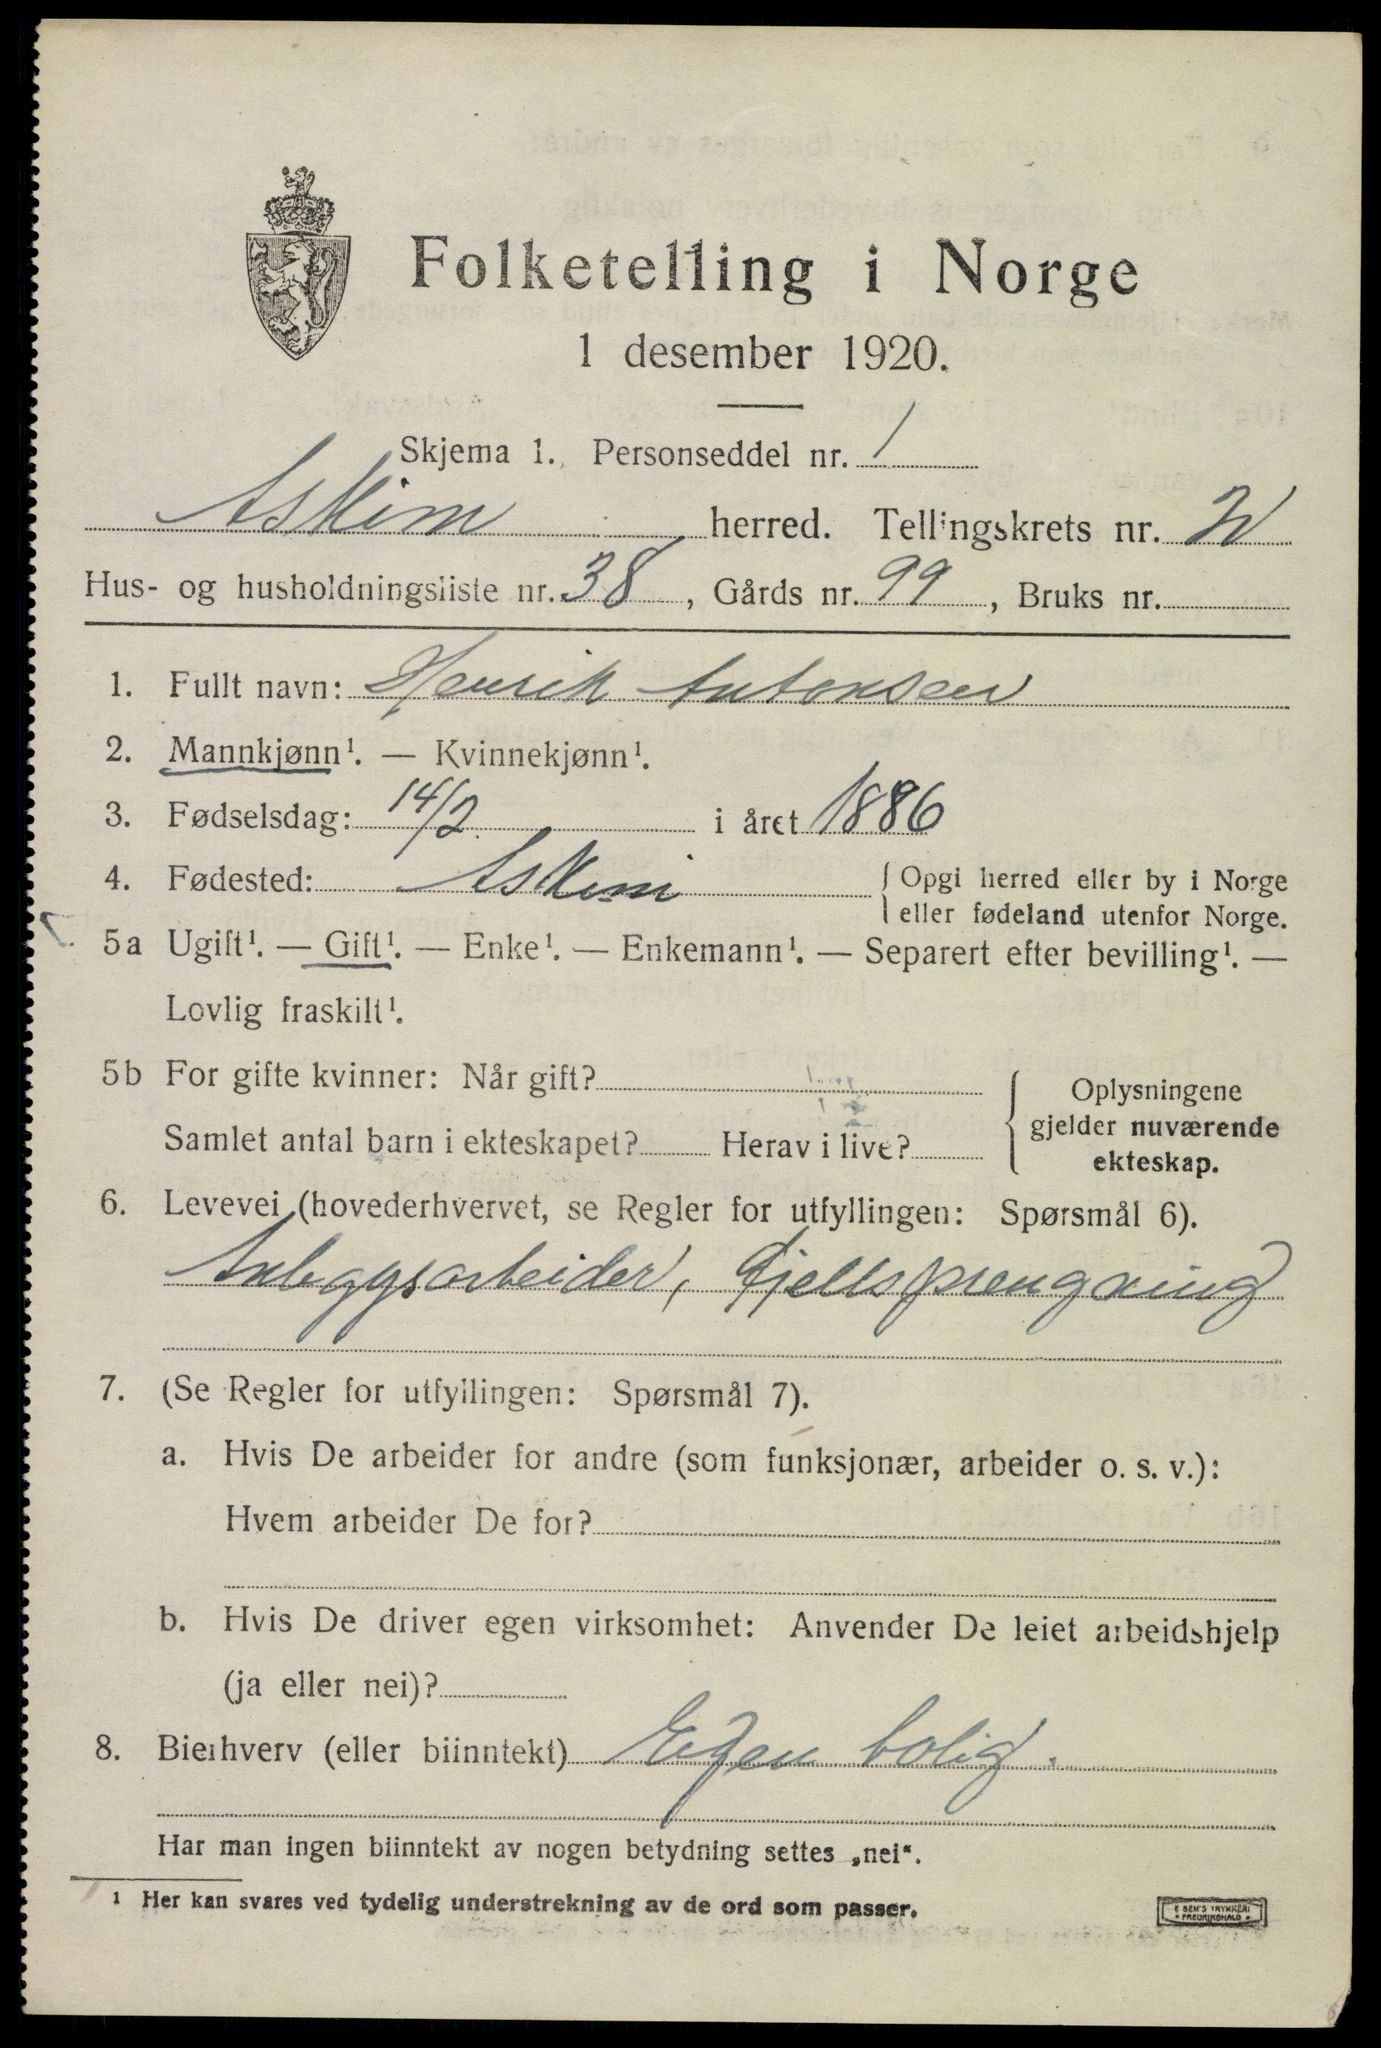 Folketelling i Norge
1 desember 1920.
Skjema 1. Personseddel nr. 1
Askim herred. Tellingskrets nr. 2
Hus- og husholdningsliste nr. 38, Gårds nr. 99, Bruks nr.
1. Fullt navn: Henrik Antonsen
2. Mannkjønn¹. — Kvinnekjønn¹.
3. Fødselsdag: 14/2 i året 1886
4. Fødested: Askim { Opgi herred eller by i Norge
eller fødeland utenfor Norge.
5a Ugift¹. — Gift¹. — Enke¹. — Enkemann¹. — Separert efter bevilling¹. —
Lovlig fraskilt¹.
5b For gifte kvinner: Når gift?
Samlet antal barn i ekteskapet? Herav i live?
Oplysningene
gjelder nuværende
ekteskap.
6. Levevei (hovederhvervet, se Regler for utfyllingen: Spørsmål 6).
Anlegsarbeider, Fjellsprengning
7. (Se Regler for utfyllingen: Spørsmål 7).
a. Hvis De arbeider for andre (som funksjonær, arbeider o. s. v.):
Hvem arbeider De for?
b. Hvis De driver egen virksomhet: Anvender De leiet arbeidshjelp
(ja eller nei)?
8. Bierhverv (eller biinntekt) Egen bolig.
Har man ingen biinntekt av nogen betydning settes „nei“.
1 Her kan svares ved tydelig understrekning av de ord som passer.
E SEM'S TRYKKERI
FREDRIKSHALD